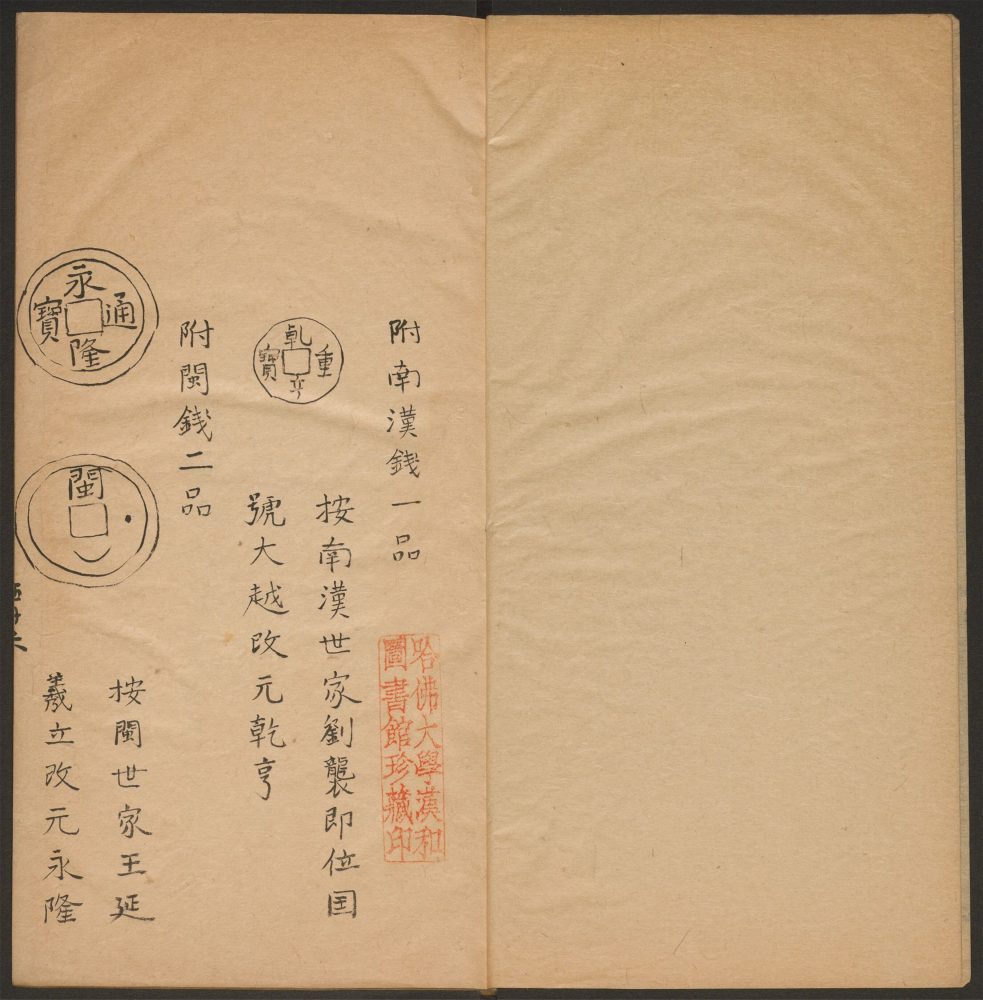 附南漢錢一品
哈佛大學漢和
圖書館珍藏印
乾亨重寶
按南漢世家劉襲即位国
號大越改元乾亨
附閩錢二品
永隆通寶
閩
按閩世家王延
羲立改元永隆